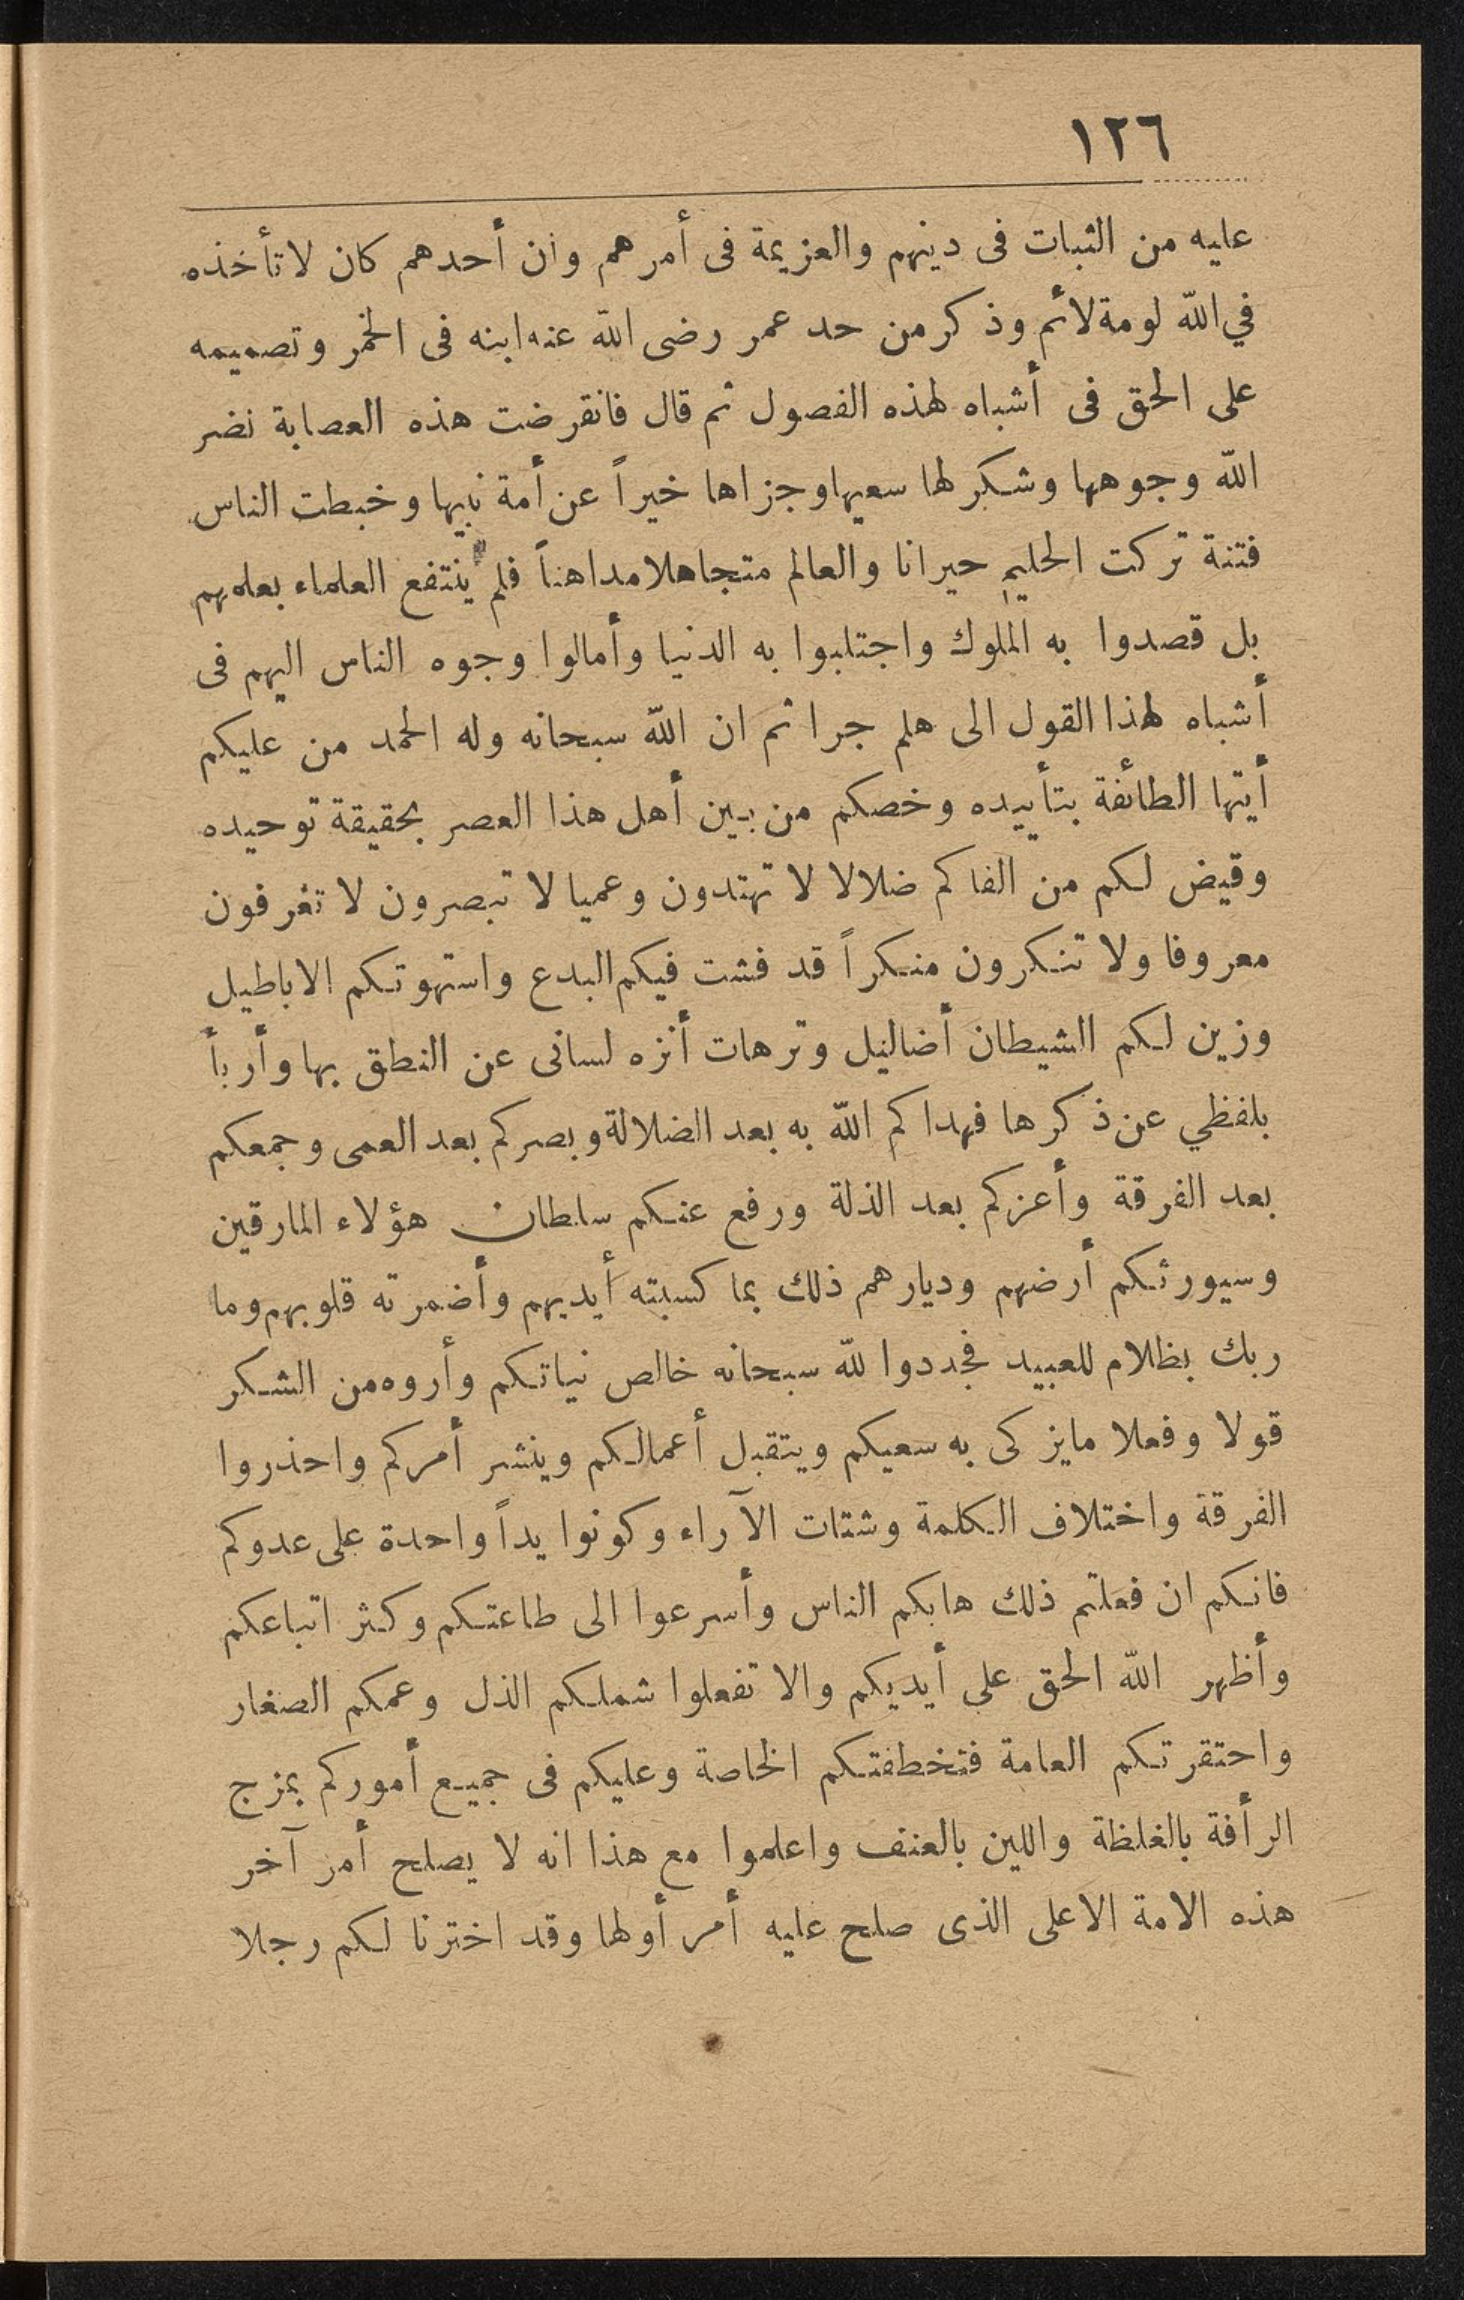 ١٢٦
عليه من الثبات فى دينهم والعزيمة فى أمرهم وأن أحدهم كان لا تأخذه
في الله لومة لائم وذكر من حد عمر رضى الله عنه ابنه فى الخمر وتصميمه
على الحق فى أشباه لهذه الفصول ثم قال فانقرضت هذه العصابة نضر
الله وجوهها وشكر لها سعيها وجزاها خيراً عن أمة نبيها وخبطت الناس
فتنة تركت الحليم حيرانا والعالم متجاهلا مداهناً فلم ينتفع العلماء بعلمهم
بل قصدوا به الملوك واجتلبوا به الدنيا وأمالوا وجوه الناس اليهم فى
أشباه لهذا القول الى هلم جرا ثم ان الله سبحانه وله الحمد من عليكم
أيتها الطائفة بتأييده وخصكم من بين أهل هذا العصر بحقيقة توحيده
وقيض لكم من الفاكم ضلالا لا تهتدون وعميا لا تبصرون لا تعرفون
معروفا ولا تنكرون منكراً قد فشت فيكم البدع واستهوتكم الاباطيل
وزين لكم الشيطان أضاليل وترهات أنزه لسانى عن النطق بها وأربأ
بلفظي عن ذكرها فهداكم الله به بعد الضلالة وبصركم بعد العمى وجمعكم
بعد الفرقة وأعزكم بعد الذلة ورفع عنكم سلطان هؤلاء المارقين
وسيورثكم أرضهم وديارهم ذلك بما كسبته أيديهم وأضمرته قلوبهم وما
ربك بظلام للعبيد فجددوا لله سبحانه خالص نياتكم وأروه من الشكر
قولا وفعلا مايزكى به سعيكم ويتقبل أعمالكم وينشر أمركم واحذروا
الفرقة واختلاف الكلمة وشتات الآراء وكونوا يداً واحدة على عدوكم
فانكم ان فعلتم ذلك هابكم الناس وأسرعوا الى طاعتكم وكثر اتباعكم
وأظهر الله الحق على أيديكم والا تفعلوا شملكم الذل وعمكم الصغار
واحتقرتكم العامة فتخطفتكم الخاصة وعليكم فى جميع أموركم بمزج
الرأفة بالغلظة واللين بالعنف واعلموا مع هذا انه لا يصلح أمر آخر
هذه الامة الا على الذى صلح عليه أمر أولها وقد اخترنا لكم رجلا